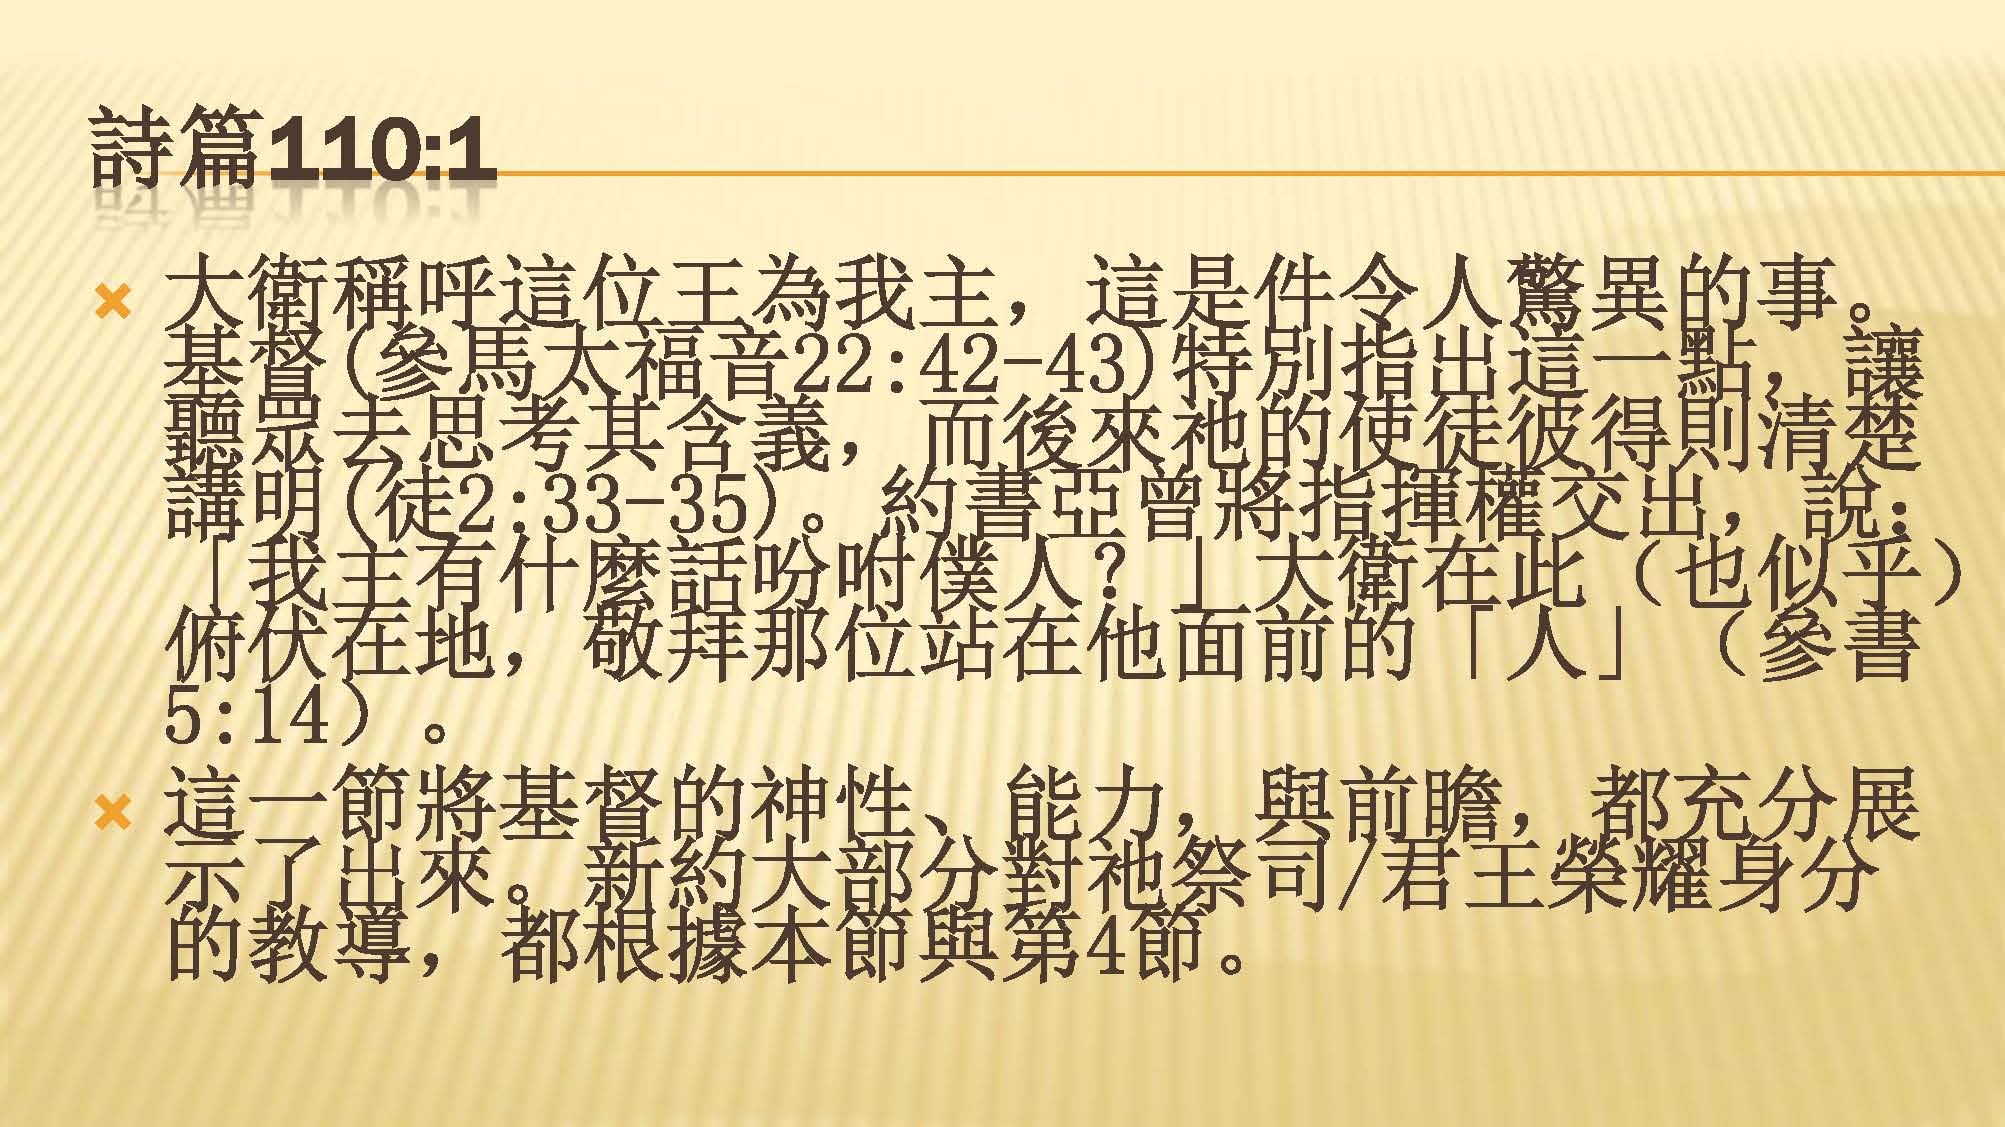 詩篇110:1
大衛稱呼這位王為我主，這是件令人驚異的事。
基督(參馬太福音22:42-43)特別指出這一點，讓
聽眾去思考其含義，而後來祂的使徒彼得則清楚
講明(徒2:33-35)。約書亞曾將指揮權交出，說：
「我主有什麼話吩咐僕人？」大衛在此（也似乎）
俯伏在地，敬拜那位站在他面前的「人」（參書
5:14）。
這一節將基督的神性、能力，與前瞻，都充分展
示了出來。新約大部分對祂祭司/君王榮耀身分
的教導，都根據本節與第4節。